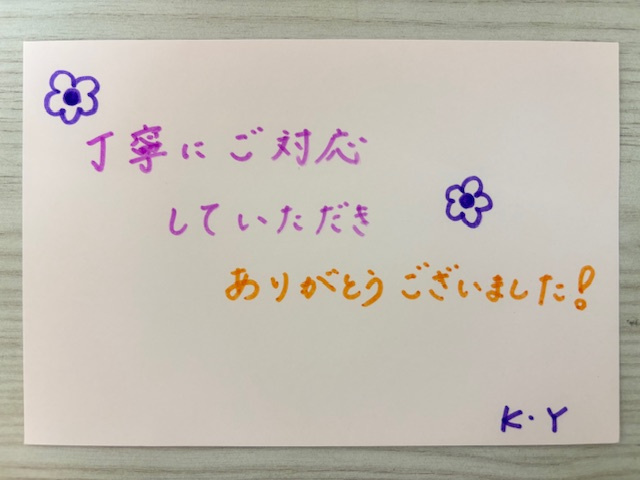 丁寧にご対応
していただき
ありがとうございました!
K・Y